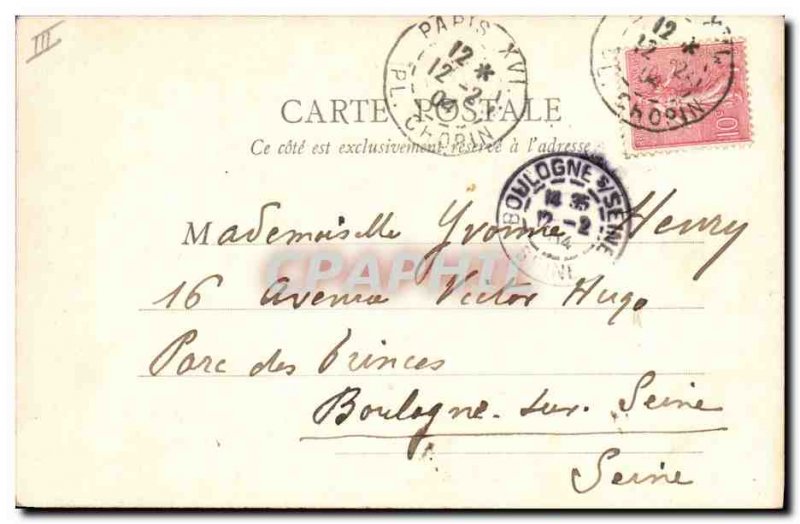 III
PARIS XVI
12 *
12 -2
04
PL. CHOPIN
12 *
12 -2
04
CHOPIN
10
CARTE POSTALE
Ce côté est exclusivement réservé à l'adresse
BOULOGNE S/SEINE
14 35
12 -2
04
SEINE
Mademoiselle Yvonne Henry
CPAPHIL
16 Avenue Victor Hugo
Parc des Princes
Boulogne-sur-Seine
Seine